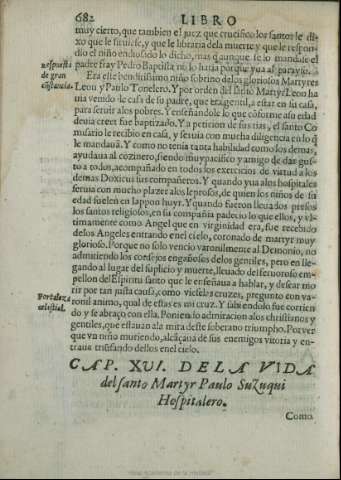 682 LIBRO
muy cierto, que tambien el juez que crucifico los santos le di-
xo que le siruiese, y que le libraria dela muerte y que le respon-
dio el niño enduzido lo dicho, mas q aunque se lo mandase el
padre fray Pedro Baptista no lo haria porque yua al parayso.
Respuesta de gran costancia.
Era este benditissimo niño sobrino delos gloriosos Martyres
Leon y Paulo Tonelero. Y por orden del santo Martyr Leon ha
uia venido de casa de su padre, que era gentil, a estar en su casa,
para seruir alos pobres. Y enseñandole lo que cõforme a su edad
deuia creer fue baptizado. Y a peticion de sus tias, el santo Co
misario le recibio en casa, y seruia con mucha diligencia en lo q̃
le mandauã. Y como no tenia tanta habilidad como los demas,
ayudaua al cozinero, siendo muy pacifico y amigo de dar gus-
to a todos, acompañado en todos los exercicios de virtud a los
demas Doxicus sus compañeros. Y quando yua alos hospitales
seruia con mucho plazer alos leprosos, de quien los niños de su
edad suelen en Iappon huyr. Y quando fueron lleuados presos
los santos religiosos, en su compañia padecio lo que ellos, y vl-
timamente como Angel que en virginidad era, fue recebido
delos Angeles entrando enel cielo, coronado de martyr muy
glorioso. Porque no solo vencio varonilmente al Demonio, no
admitiendo los consejos engañosos delos gentiles, pero en lle-
gando al lugar del suplicio y muerte, lleuado del feruoroso em-
pellon del Espiritu santo que le enseñaua a hablar, y desear mo
rir por tan justa causa, como viesse las cruzes, pregunto con va-
Fortaleza celestial.
ronil animo, qual de estas es mi cruz. Y sabiendolo fue corrien
do y se abraço con ella. Poniendo admiracion alos christianos y
gentiles, que estauan ala mira deste soberano triumpho. Por ver
que vn niño muriendo, alcãçaua de sus enemigos vitoria y en-
traua triũfando dellos enel cielo.
CAP. XVI. DE LA VIDA
del santo Martyr Paulo SuZuqui
Hospitalero.
Como